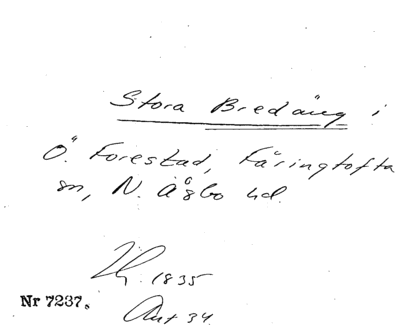 Stora Bredäng i
Ö. Forestad, Färingtofta
sn, N. Åsbo hd.
1835
Nr 7237.
Aut 34